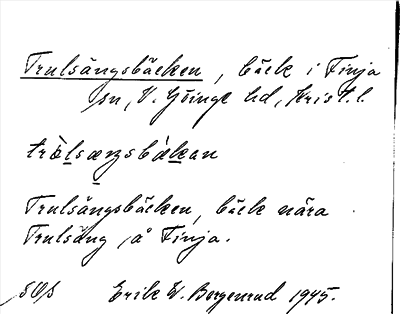 Trulsängsbäcken, bäck i Finja
sn, V. Göinge hd, Krist. l.
trò̱lsæŋsbæ̀kan
Trulsängsbäcken, bäck nära
Trulsäng å Finja.
Erik W. Borgenrud 1945.